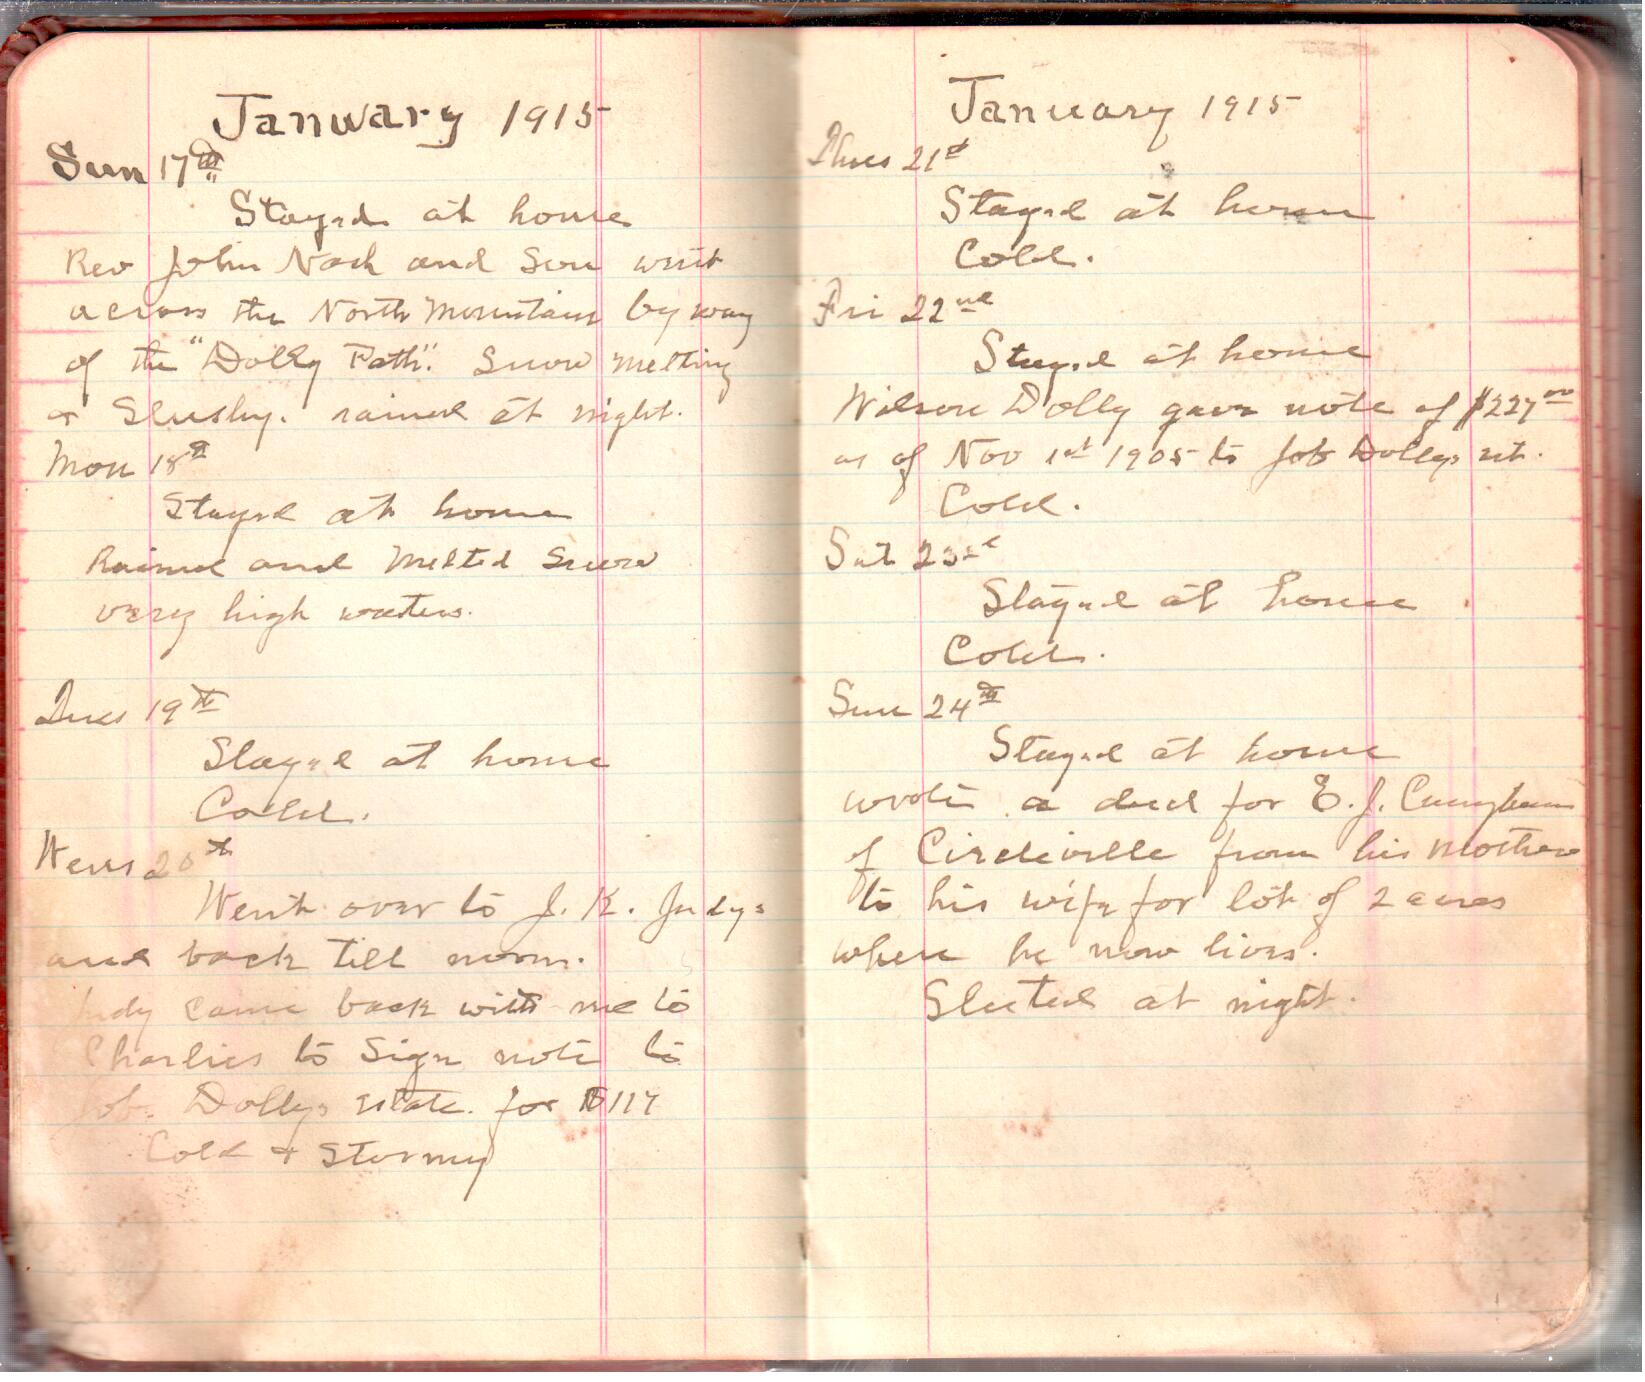 January 1915
Sun 17th
Stayed at home
Rev John Nock and Son went
across the North Mountain by way
of the "Dolly Path". Snow melting
& Slushy. rained at night.
Mon 18th
Stayed at home
Rained and Melted Snow
very high waters.
Tues 19th
Stayed at home
Cold.
Wens 20th
Went over to J. K. Judys
and back till noon.
Judy came back with me to
Charlies to Sign note to
Job. Dollys estate. for $117
Cold & Stormy
January 1915
Thurs 21st
Stayed at home
Cold.
Fri 22nd
Stayed at home
Wilson Dolly gave note of $22700
as of Nov 1st 1905 to Job Dollys est.
Cold.
Sat 23rd
Stayed at home
Cold.
Sun 24th
Stayed at home
wrote a deed for E. J.
of Circleville from his Mother
to his wife for lot of 2 acres
where he now lives.
Sleeted at night.